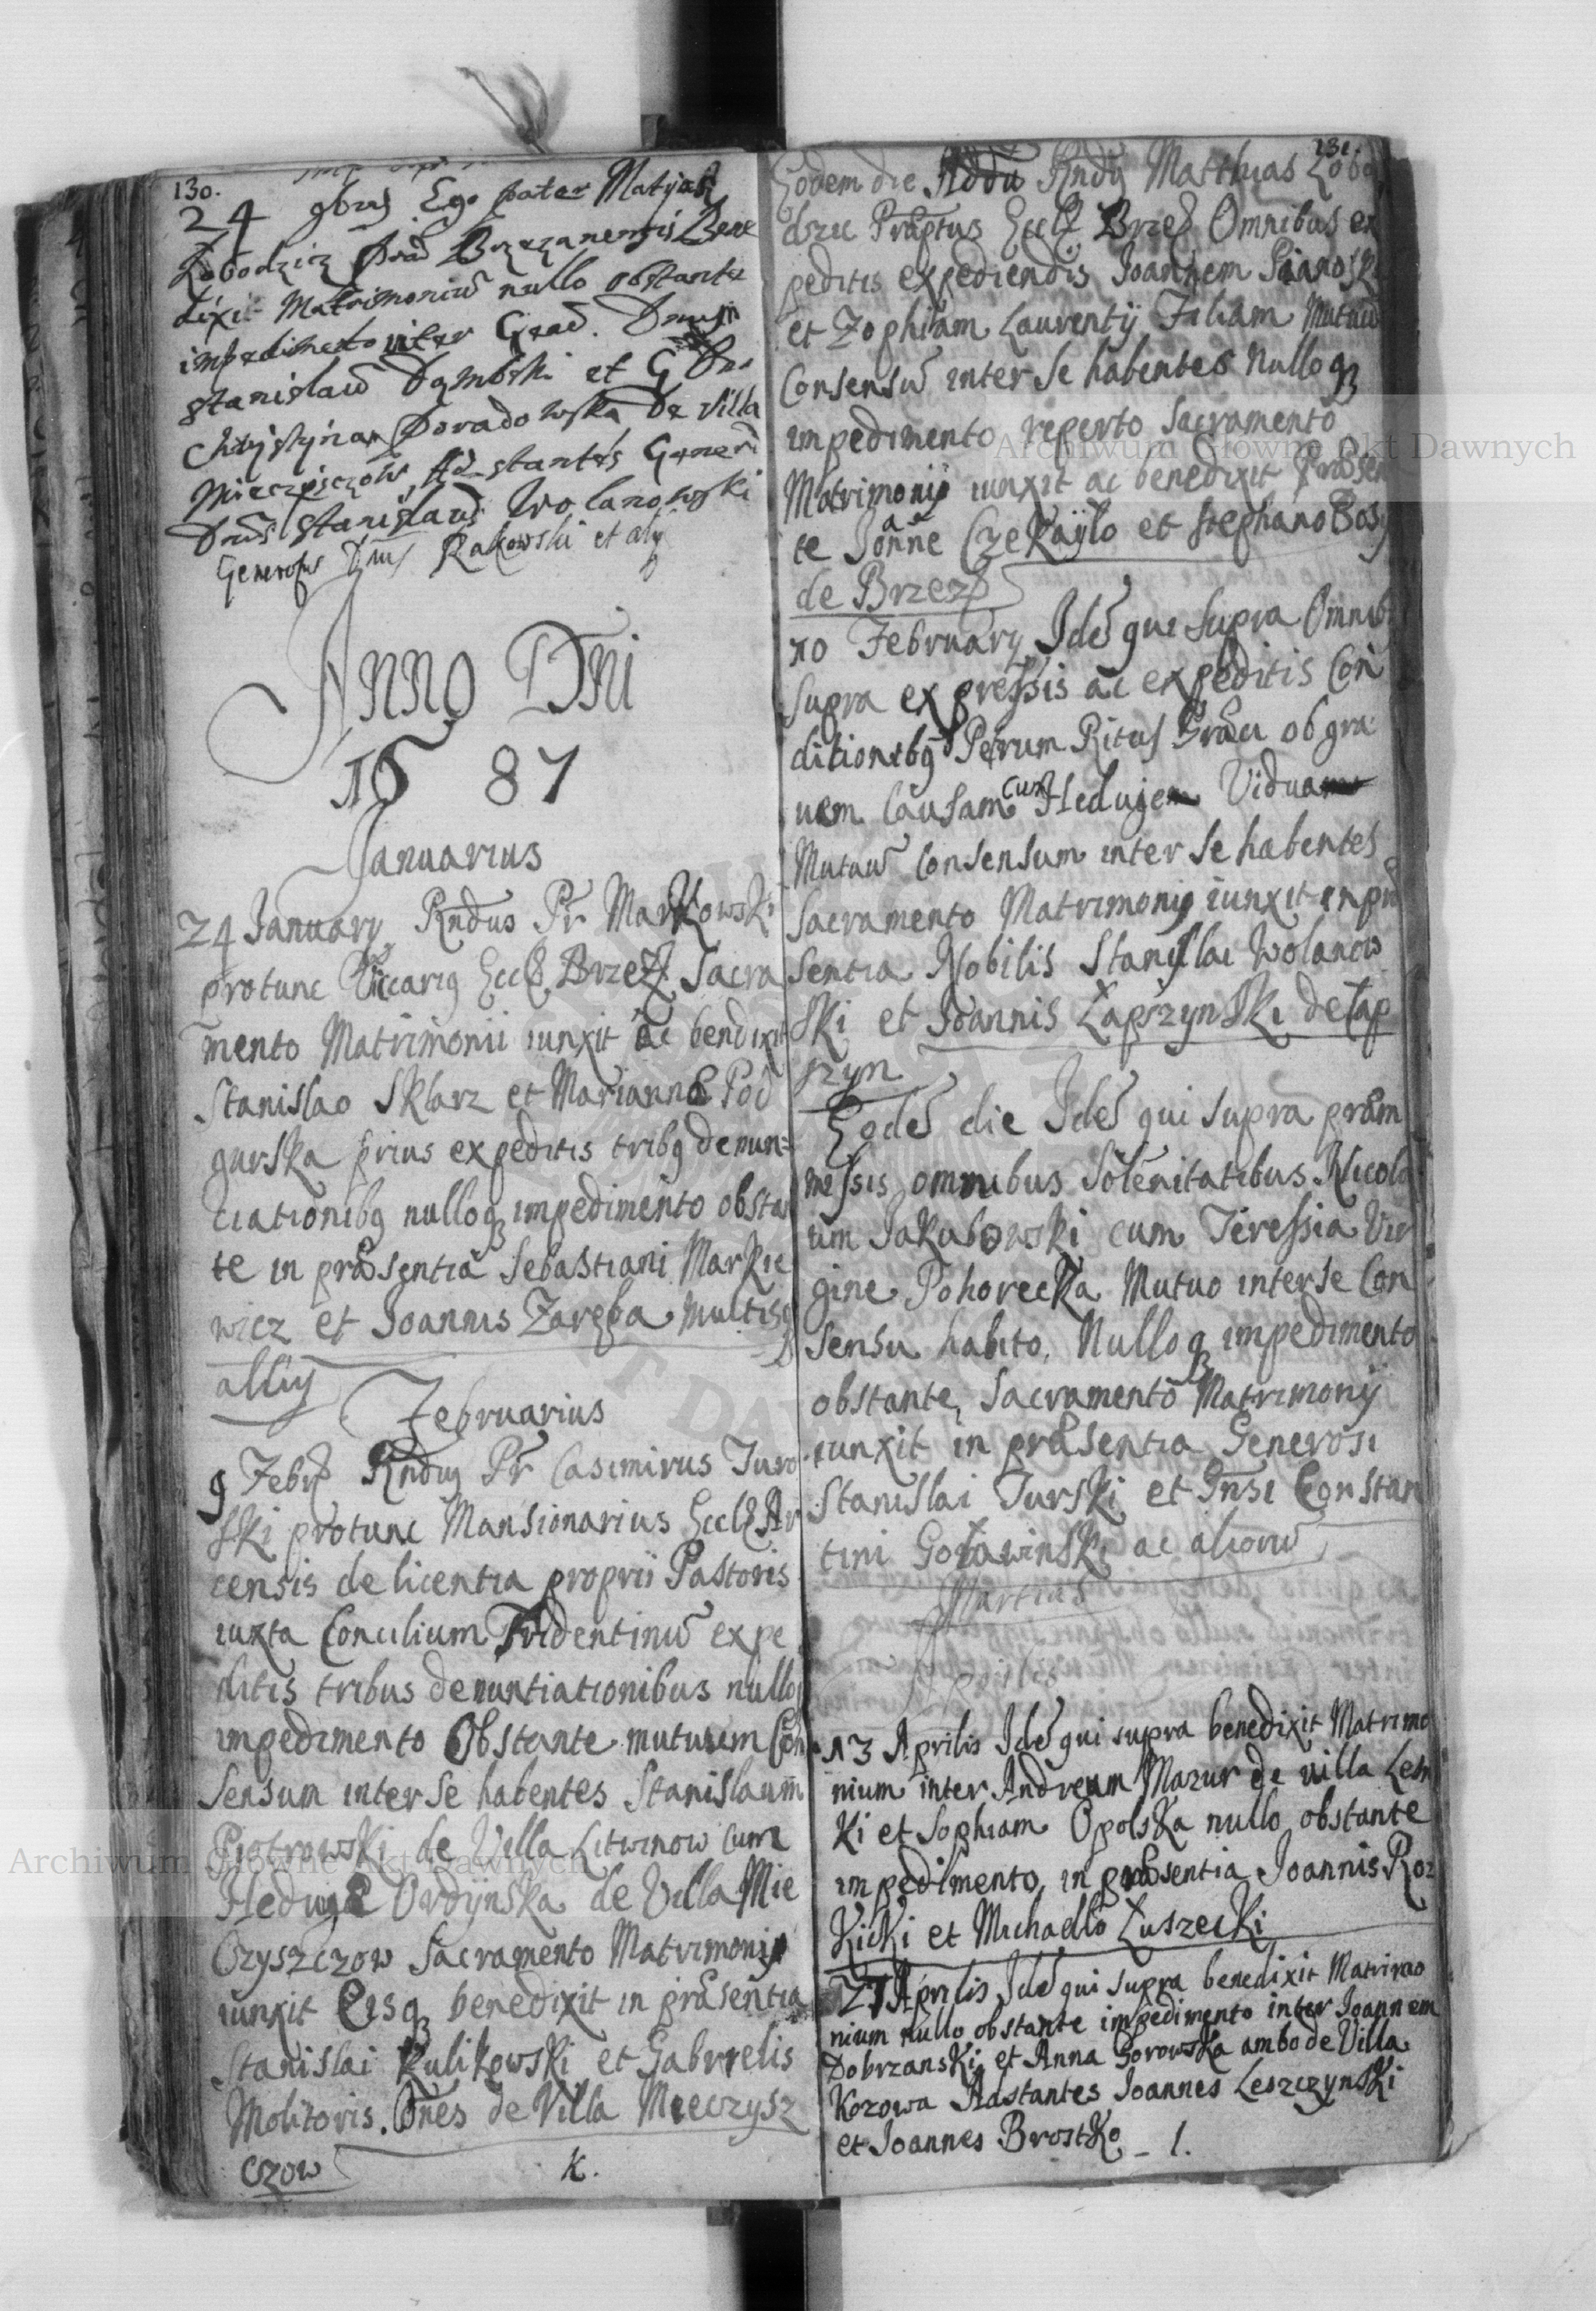 130.
24 9bris Ego pater Matyas
Łobodzicz Prad Brzezanensis Bene
dixit Matrimoniu nullo obstante
impedimento inter Gnad. Dnum
Stanislau Dąmbski et G Dna
Christynam Doradowska De villa
Mieczysczow, Ad stantes Generi
Dnus Stanislaus Wolanowski
Generosus Dnus Rakowski et alij
Anno Dni
1687
Januarius
24 January Rndus Pr Markowski
protunc Vicarig Eccl Brzez Sacra
mento Matrimonii iunxit ac bendixit
Stanislao Sklarz et Marianna Pod
gurska prius expeditis tribg denun=
ciationibg nulloq impedimento obstan
te in præsentia Sebastiani Markie
wicz et Joannis Zaręba multisq
allijs
Februarius
9 Febr Rndus Pr Casimirus Turo
ski protunc Mansionarius Eccl Ar
censis de licentia proprii Pastoris
iuxta Concilium Tridentinu expe
ditis tribus denuntiationibus nulloq
impedimento Obstante mutuum Con
sensum inter Se habentes Stanislaum
Piotrowski de Villa Litwinow cum
Hedwige Ordynska de Villa Mie
Czyszczow Sacramento Matrimonij
iunxit Eisq benedixit in præsentia
Stanislai Kulikowski et Gabrielis
Molitoris. Ones de Villa Mieczysz
czow
K.
131.
Eodem die Addu Rndg Matthias Łobo
dzic Præptus Eccl Brzez Omnibus ex
peditis expediendis Joannem Pianoski
et Zophiam Laurentij Filiam Mutuu
Consensu inter Se habentes Nulloq
impedimento reperto Sacramento
Matrimonij iunxit ac benedixit Præsen
te Joanne Czekayło et Stephano Bosy
de Brzez
10 February Ide qui Supra Omnibg
Supra expressis ac expeditis Con
ditionibg Petrum Ritus Græci ob gra
uem Causam cum Hedwige Vidua
Mutuu Consensum inter Se habentes
Sacramento Matrimonij iunxit in præ
sentia Nobilis Stanislai Wolanow
ski et Joannis Łapszynski de Łap
szyn
Eode die Ide qui supra præm
messis omnibus Solenitatibus Nicola
um Jakubowski cum Teressia Vir
gine Pohorecka Mutuo inter se Con
sensu habito. Nulloq impedimento
obstante, Sacramento Matrimonij
iunxit in præsentia Generosi
Stanislai Turski et Gnsi Constan
tini Goławinski ac aliorū
Martius
Aprilis
13 Aprilis Ide qui supra benedixit Matrimo
nium inter Andream Mazur de villa Lesni
Ki et Sophiam Opolska nullo obstante
impedimento, in præsentia Joannis Roz
Kicki et Michaello Łuszecki
27 Aprilis Ide qui supra benedixit Matrimo
nium nullo obstante impedimento inter Joannem
Dobrzanski et Anna Gorowska ambo de Villa
Kozowa Adstantes Joannes Leszczynski
et Joannes Brostko
l.
Archiwum Główne Akt Dawnych
Archiwum Główne Akt Dawnych